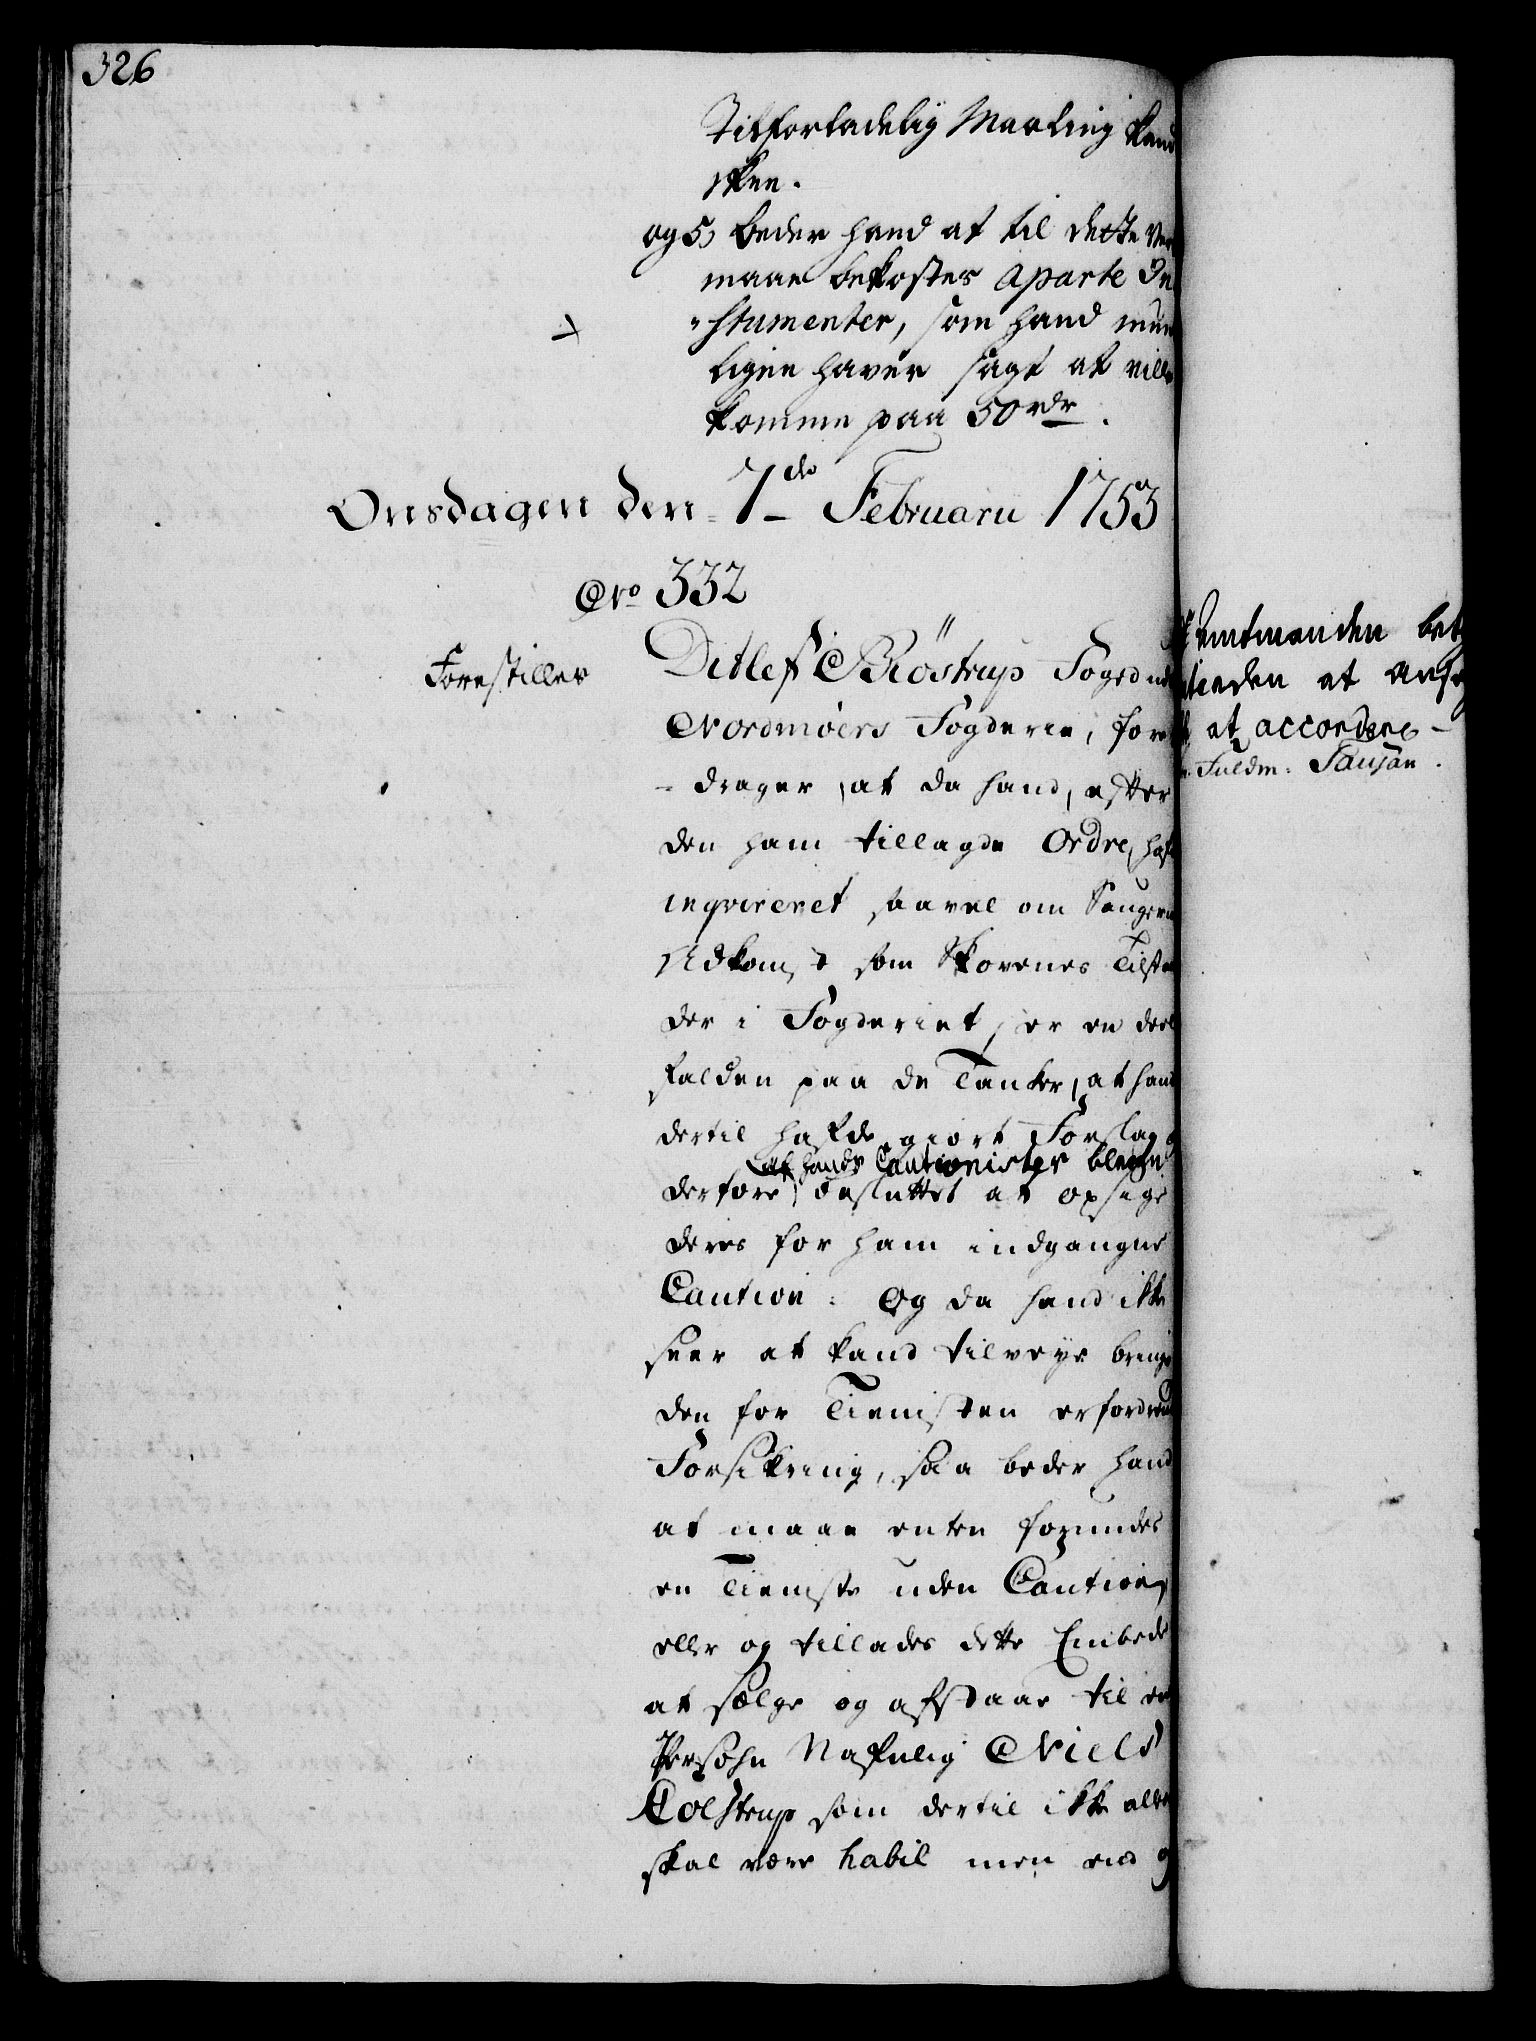 326
Tilforladelig Maaling kand
skee.
og 5, beder hand at til dette
maae bekostes aparte In
"stumenter, som hand mun
ligen haver sagt at ville
komme paa 50 rdr.
Onsdagen den 7de Februarii 1753
No 332
Forestiller
Ditlef Röstrup Foged ud
Nordmöers Fogderie, fore
- drager, at da hand, efter
den ham tillagde Ordre, haf
inqvireret saavel om Saugen
Udkomst som Skovenes Tilstan
der i Fogderiet, er en deel
falden paa de Tanker, at hand
dertil hafde giort Forslag
af hands Cautionister blevne
derfore, besluttet at opsige
deres for ham indgangne
Caution. Og da hand ikke
seer at kand tilveye bringe
den for Tienisten erfordrende
Forsikring, saa beder hand
at maae enten forundes
en Tieniste uden Caution,
eller og tillades dette Embede
at sælge og afstaae til en
Persohn Nafnlig Niels
Colstrup som dertil ikke alene
skal være habil men end
Amtmanden bet
at
at accordere -
Fuldm: